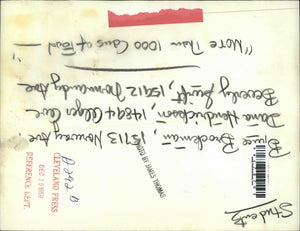 Students
Bruce Brockman, 15713 Norway Ave.
Dana Hendrickson, 14894 Ave
Beverly Swift, 15912 Normandy Ave
"More Than 1000 Cans of Food"
PHOTO BY JAMES THOMAS
CLEVELAND PRESS
DEC 19 1959
REFERENCE DEPT.